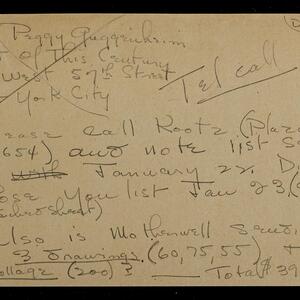 Peggy Guggenheim
of This Century
West 57th Street
York City
Tel call
ease call Kootz (Plaza
654) and note list S
with January 22. D
ose you list Jan 23, (
tached sheet)
lso is Motherwell sending
3 drawings (60,75,55)
ollage (200)?
Total $39